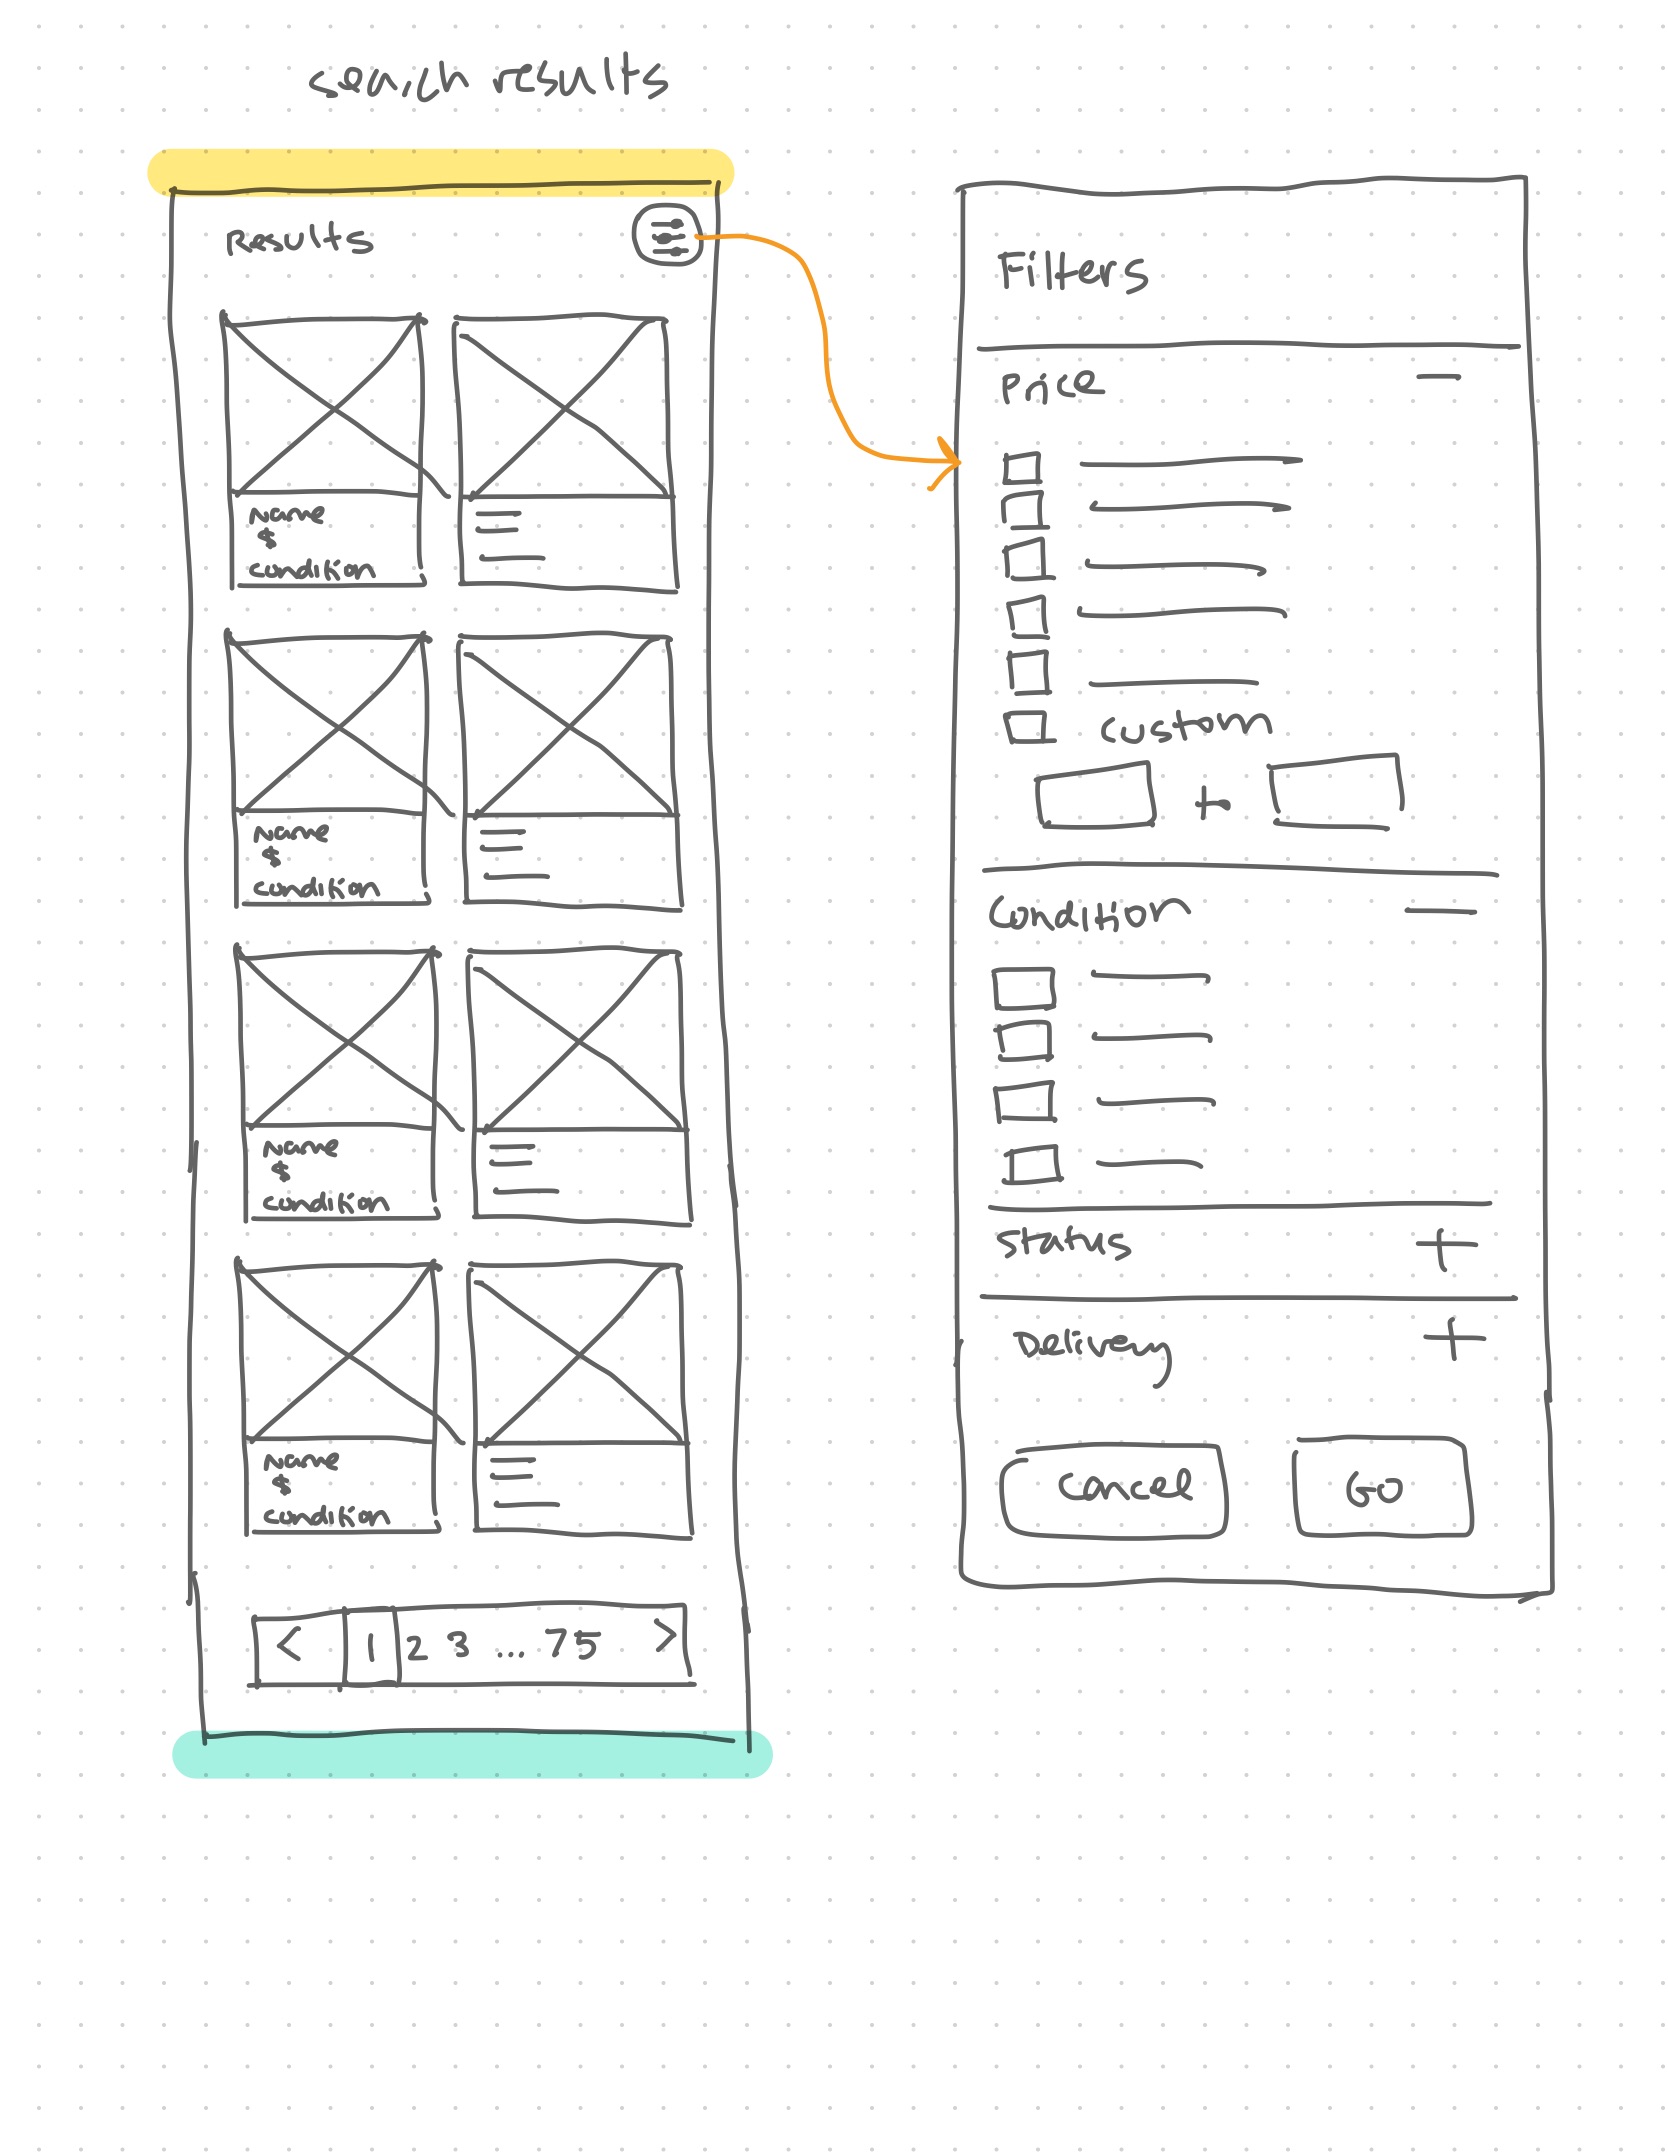 search results
Results
Name
$
condition
Name
$
condition
Name
$
condition
Name
$
condition
< 1 2 3 ... 75 >
Filters
Price —
Custom
+
Condition —
Status +
Delivery +
Cancel GO